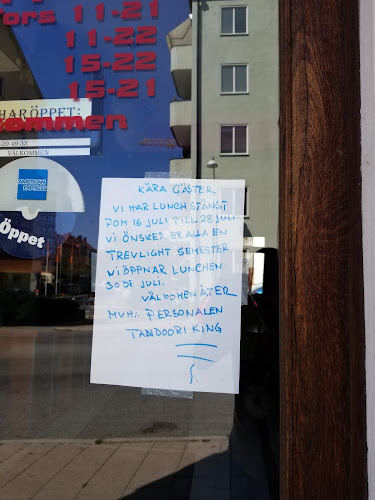 ors 11-21
11-22
15-22
15-21
HAR ÖPPET:
kommen
-29 49 33
VÄLKOMMEN
AMERICAN
EXPRESS
Öppet
KÄRA GÄSTER
VI HAR LUNCH STÄNGT
FOM 16 JULI TILL 28 JULI
VI ÖNSKER ER ALLA EN
TREVLIGHT SEMESTER
VI ÖPPNAR LUNCHEN
30 DE JULI.
VÄLKOMEN ÅTER
MVH. PERSONALEN
TANDOORI KING
S.